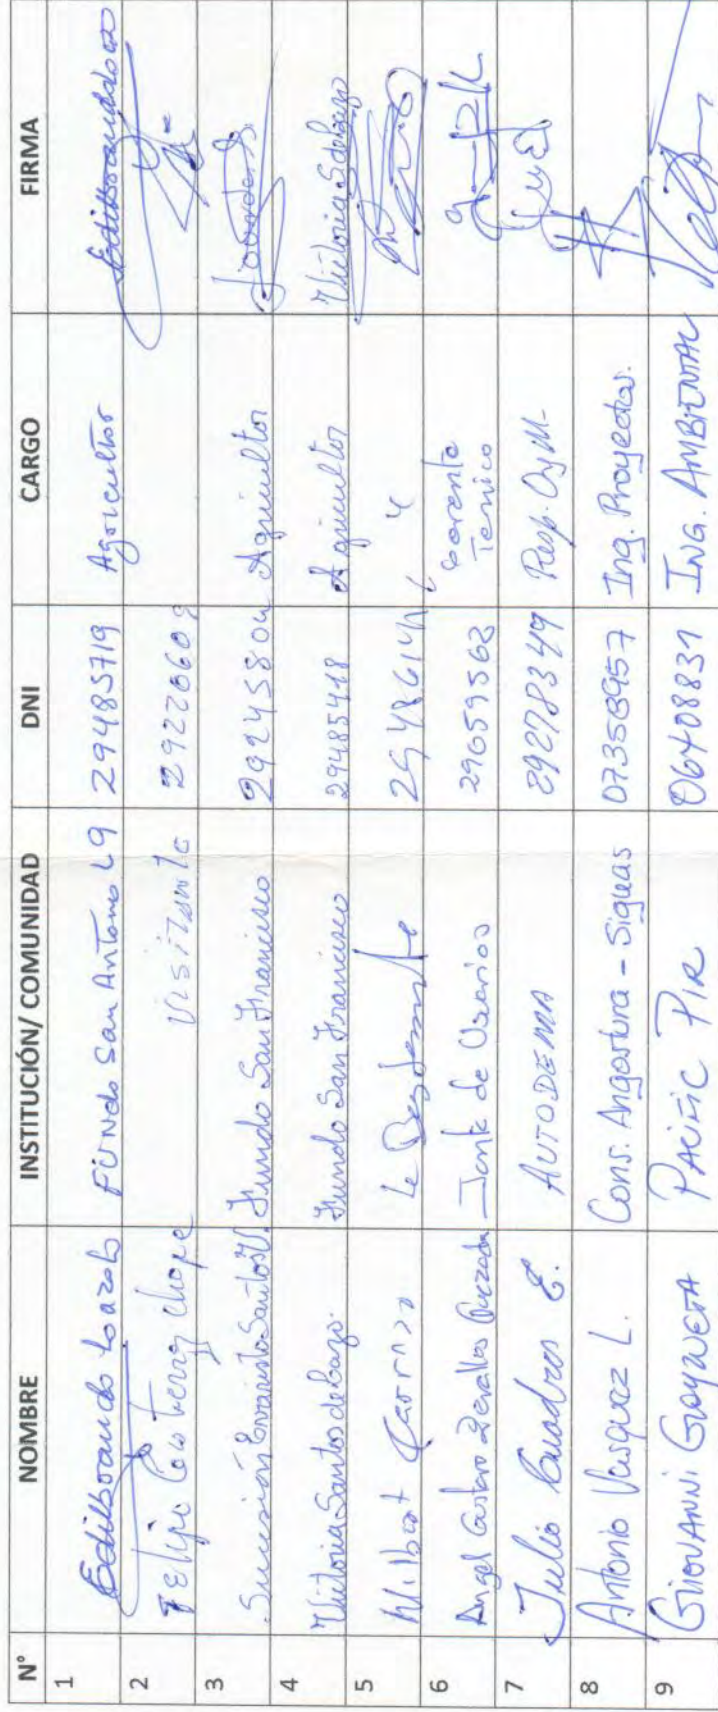 N° NOMBRE INSTITUCIÓN/ COMUNIDAD DNI CARGO FIRMA
1 Edilbrando Lazo FUNdo San Antonio L9 29485719 Agricultor
2 Felipe Contreras Visitante
3 Sucesión Evaristo Santos V. Fundo San Francisco Agricultor
4 Victoria Santos de Lazo. Fundo San Francisco 29485418 Agricultor Victoria S de Lazo
5 Wilbert Carrizo
6 Angel Gustavo Zevallos Junta de Usuarios 29659562 Gerente
Tecnico
7 Julio Cuadros E. AUTODEMA Resp. OyM.
8 Antonio Vasquez L. Cons. Angostura - Siguas 07358957 Ing. Proyectos.
9 GIOVANNI PACIFIC PIR 06408831 ING. AMBIENTAL